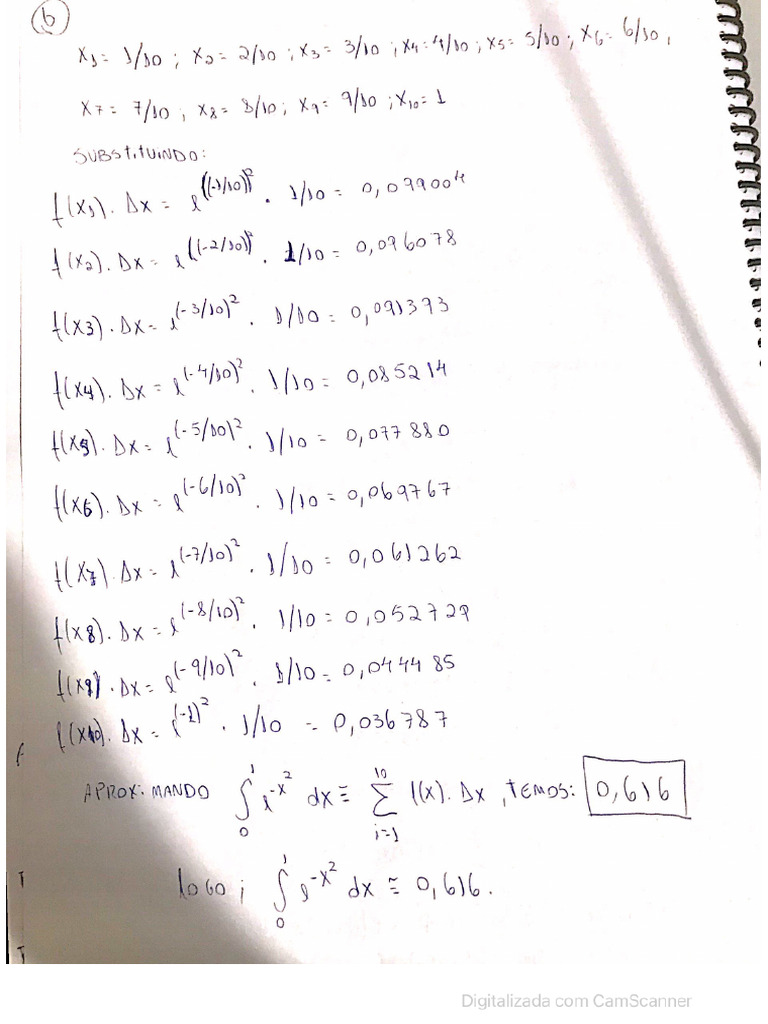 b
x₁= 1/10 ; x₂= 2/10 ; x₃= 3/10 ; x₄=4/10 ; x₅= 5/10 ; x₆= 6/10 ,
x₇= 7/10 ; x₈= 8/10 ; x₉= 9/10 ; x₁₀= 1
SUBSTITUINDO:
f(x₁). Δx = e^((-1/10))² . 1/10 = 0,099004
f(x₂). Δx = e^((-2/10))² . 1/10 = 0,096078
f(x3). Δx= e^(-3/10)² . 1/10 = 0,091393
f(x4). Δx = e^(-4/10)² . 1/10 = 0,085214
f(x5). Δx= e^(-5/10)² . 1/10 = 0,077880
f(x6). Δx = e^(-6/10)² . 1/10 = 0,069767
f(x7). Δx = e^(-7/10)² . 1/10 = 0,061262
f(x8). Δx = e^(-8/10)² . 1/10 = 0,052729
f(x9) . Δx= e^(-9/10)² . 1/10= 0,044485
f(x10). Δx = e^(-1)² . 1/10 = 0,036787
APROXIMANDO ∫₀¹ e^-x² dx ≅ ∑_{i=1}^{10} f(x). Δx , TEMOS: 0,616
logo ; ∫₀¹ e^-x² dx ≅ 0,616.
Digitalizada com CamScanner